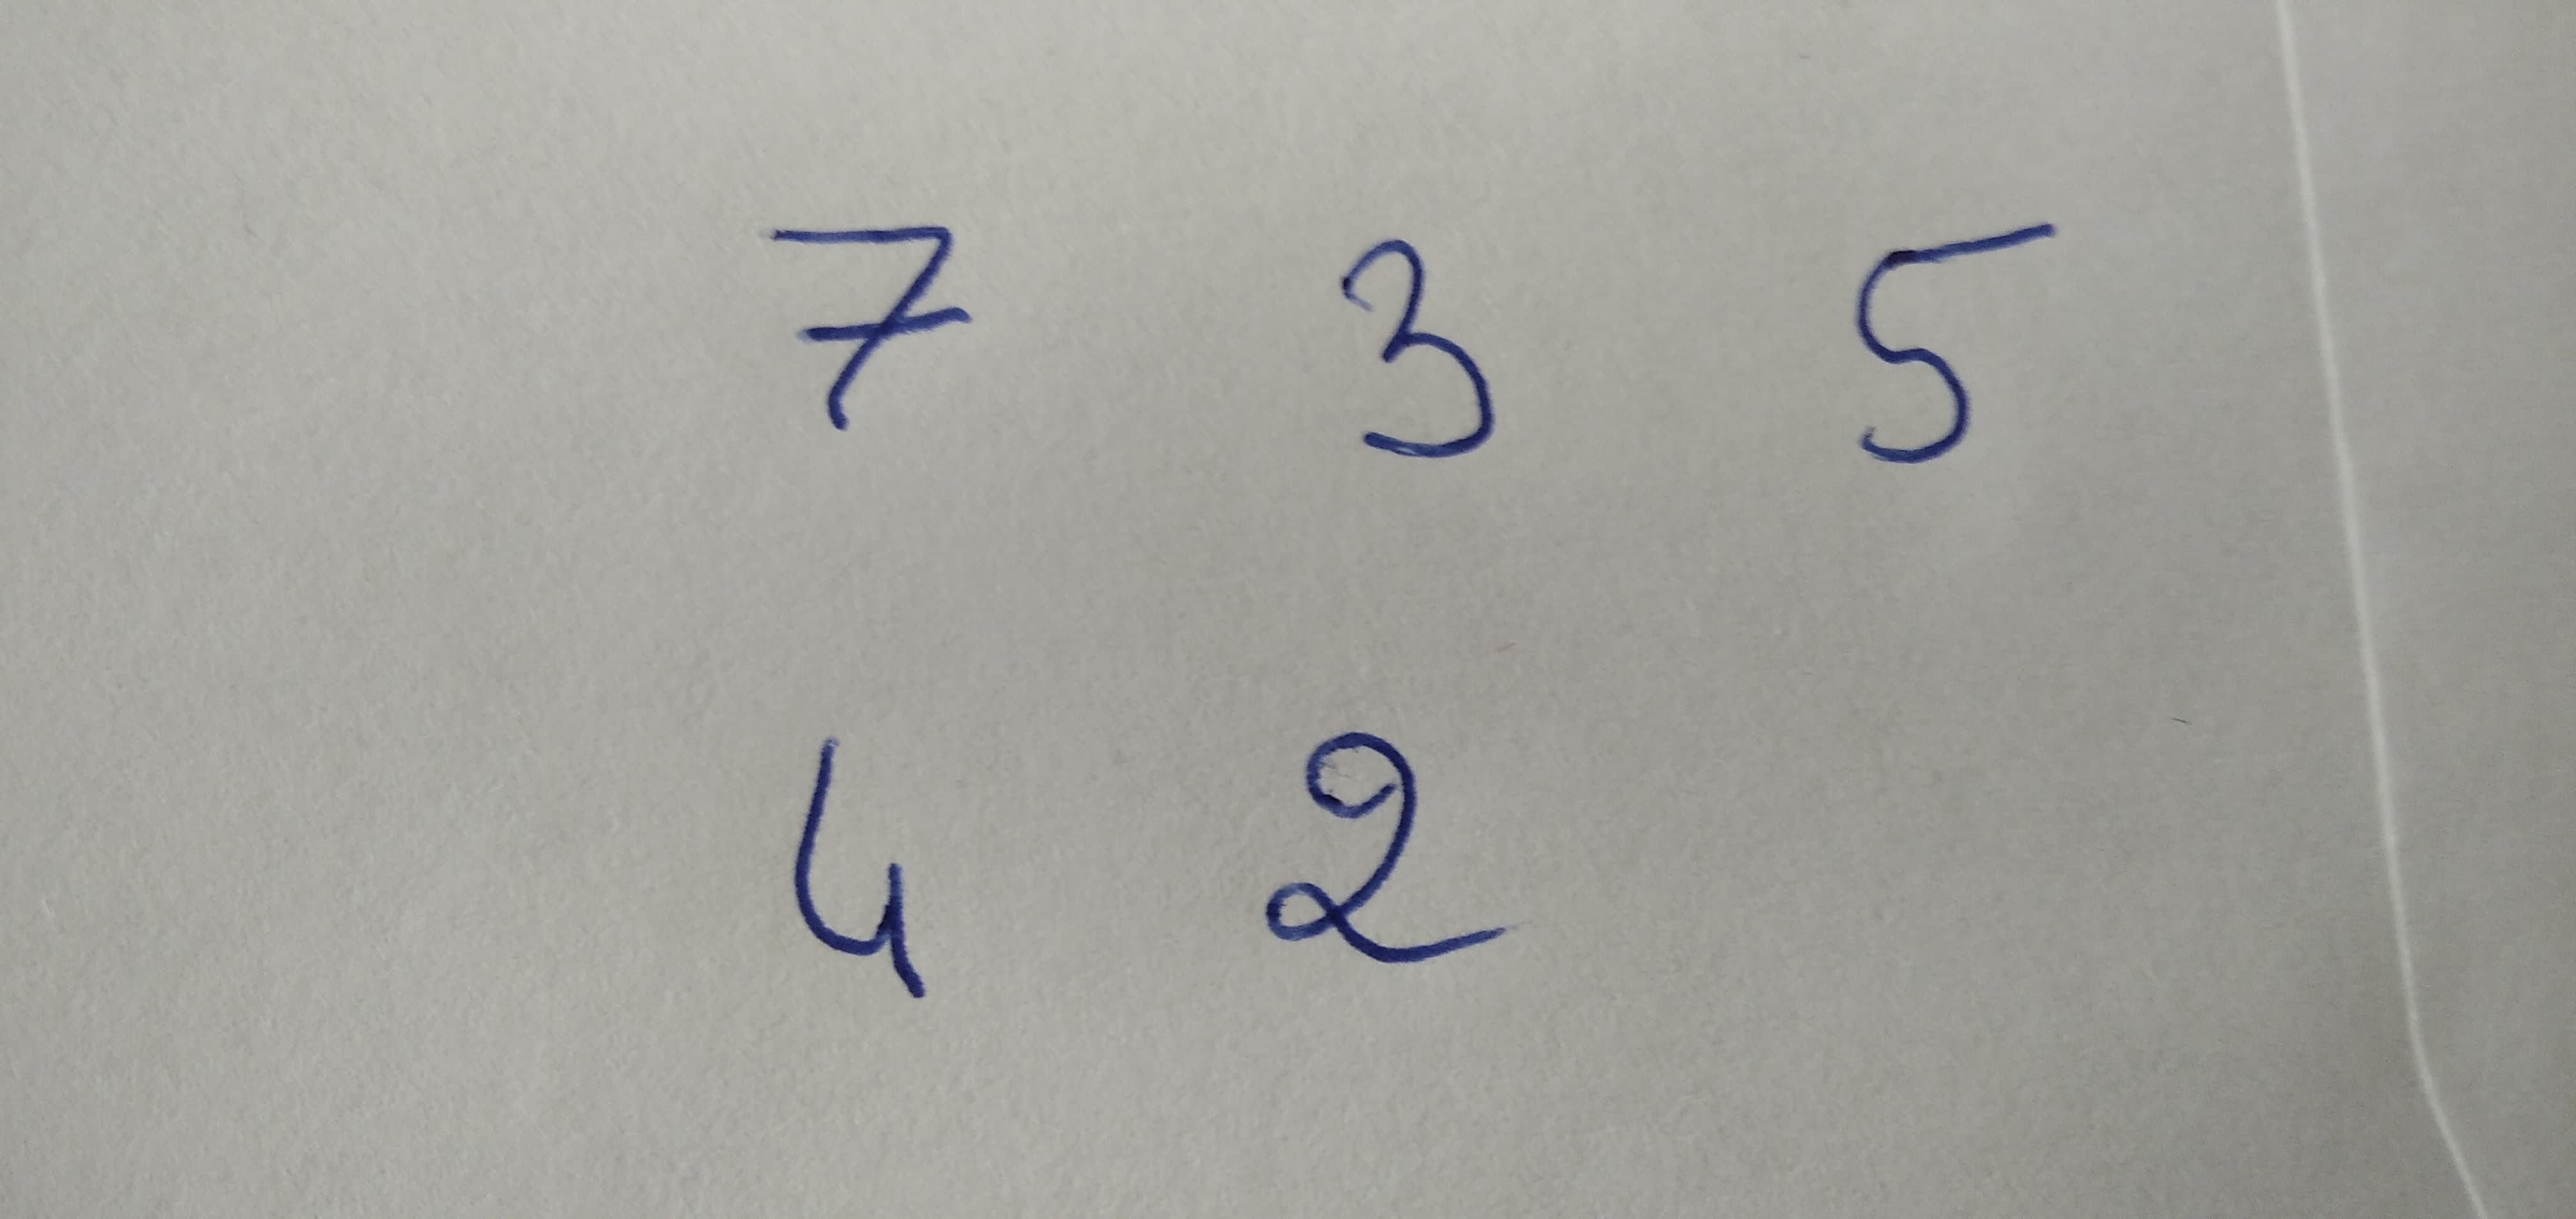 7 3 5
4 2